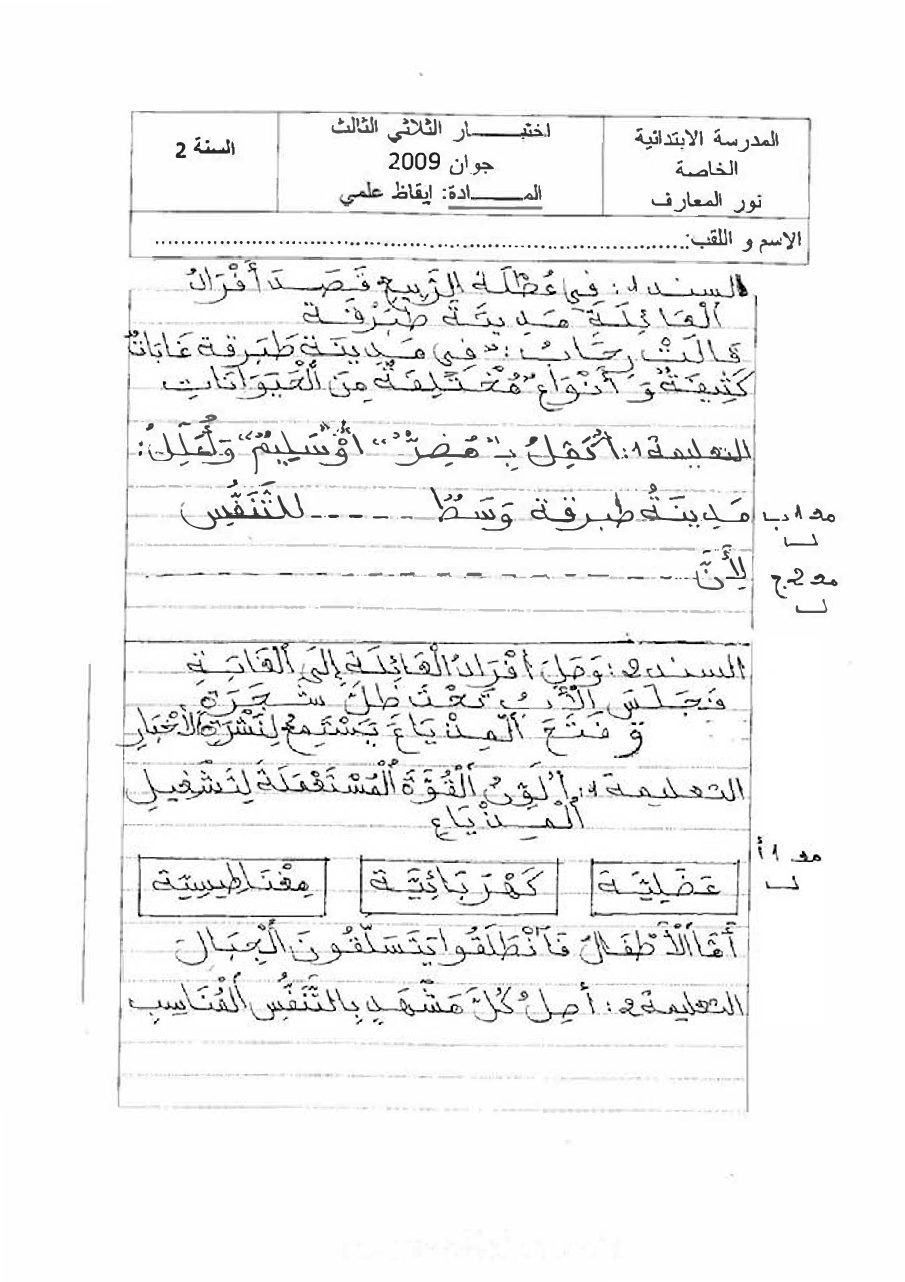 المدرسة الابتدائية
الخاصة
نور المعارف
اختبـــــــار الثلاثي الثالث
جوان 2009
المـــــــادة: إيقاظ علمي
السنة 2
الاسم و اللقب:..........................................................................................
السند 1: في عُطْلَةِ الرَّبِيعِ قَصَدَ أَفْرَادُ
اَلْعَائِلَةِ مَدِينَةَ طَبَرْقَة
قَالَتْ رِحَابُ: "فِي مَدِينَةِ طَبَرقة غَابَاتٌ
كَثِيفَةٌ وَ أَنْوَاعٌ مُخْتَلِفَةٌ مِنَ الْحَيَوَانَاتِ
التعليمة 1: أُكْمِلُ بِـ "مُضِرٌّ" أَوْ "سَلِيمٌ" وَأُعَلِّلُ:
مَدِينَةُ طبرقة وَسَطٌ ----- للتَّنَفُّسِ
مع 1 ب
لِأَنَّ --------------------
مع 2 ج
السند 2: وَصَلَ أَفْرَادُ الْعَائِلَةِ إِلَى الْغَابَةِ
فَجَلَسَ الْأَبُ تَحْتَ ظِلِّ شَجَرَةٍ
وَ فَتَحَ اَلْمِذْيَاعَ يَسْتَمِعُ لِنَشْرَةِ الأَخْبَارِ
التعليمة 1: أُلَوِّنُ اَلْقُوَّةَ اَلْمُسْتَعْمَلَةَ لِتَشْغِيلِ
اَلْمِذْيَاعِ
مع 1 أ
عَضَلِيَّة
كَهْرَبَائِيَّة
مِغْنَاطِيسِيَّة
أَمَّا اَلْأَطْفَالُ فَاَنْطَلَقُوا يَتَسَلَّقُونَ اَلْجِبَالَ
التعليمة 2: أَصِلُ كُلَّ مَشْهَدٍ بِالتَّنَفُّسِ اَلْمُنَاسِبِ